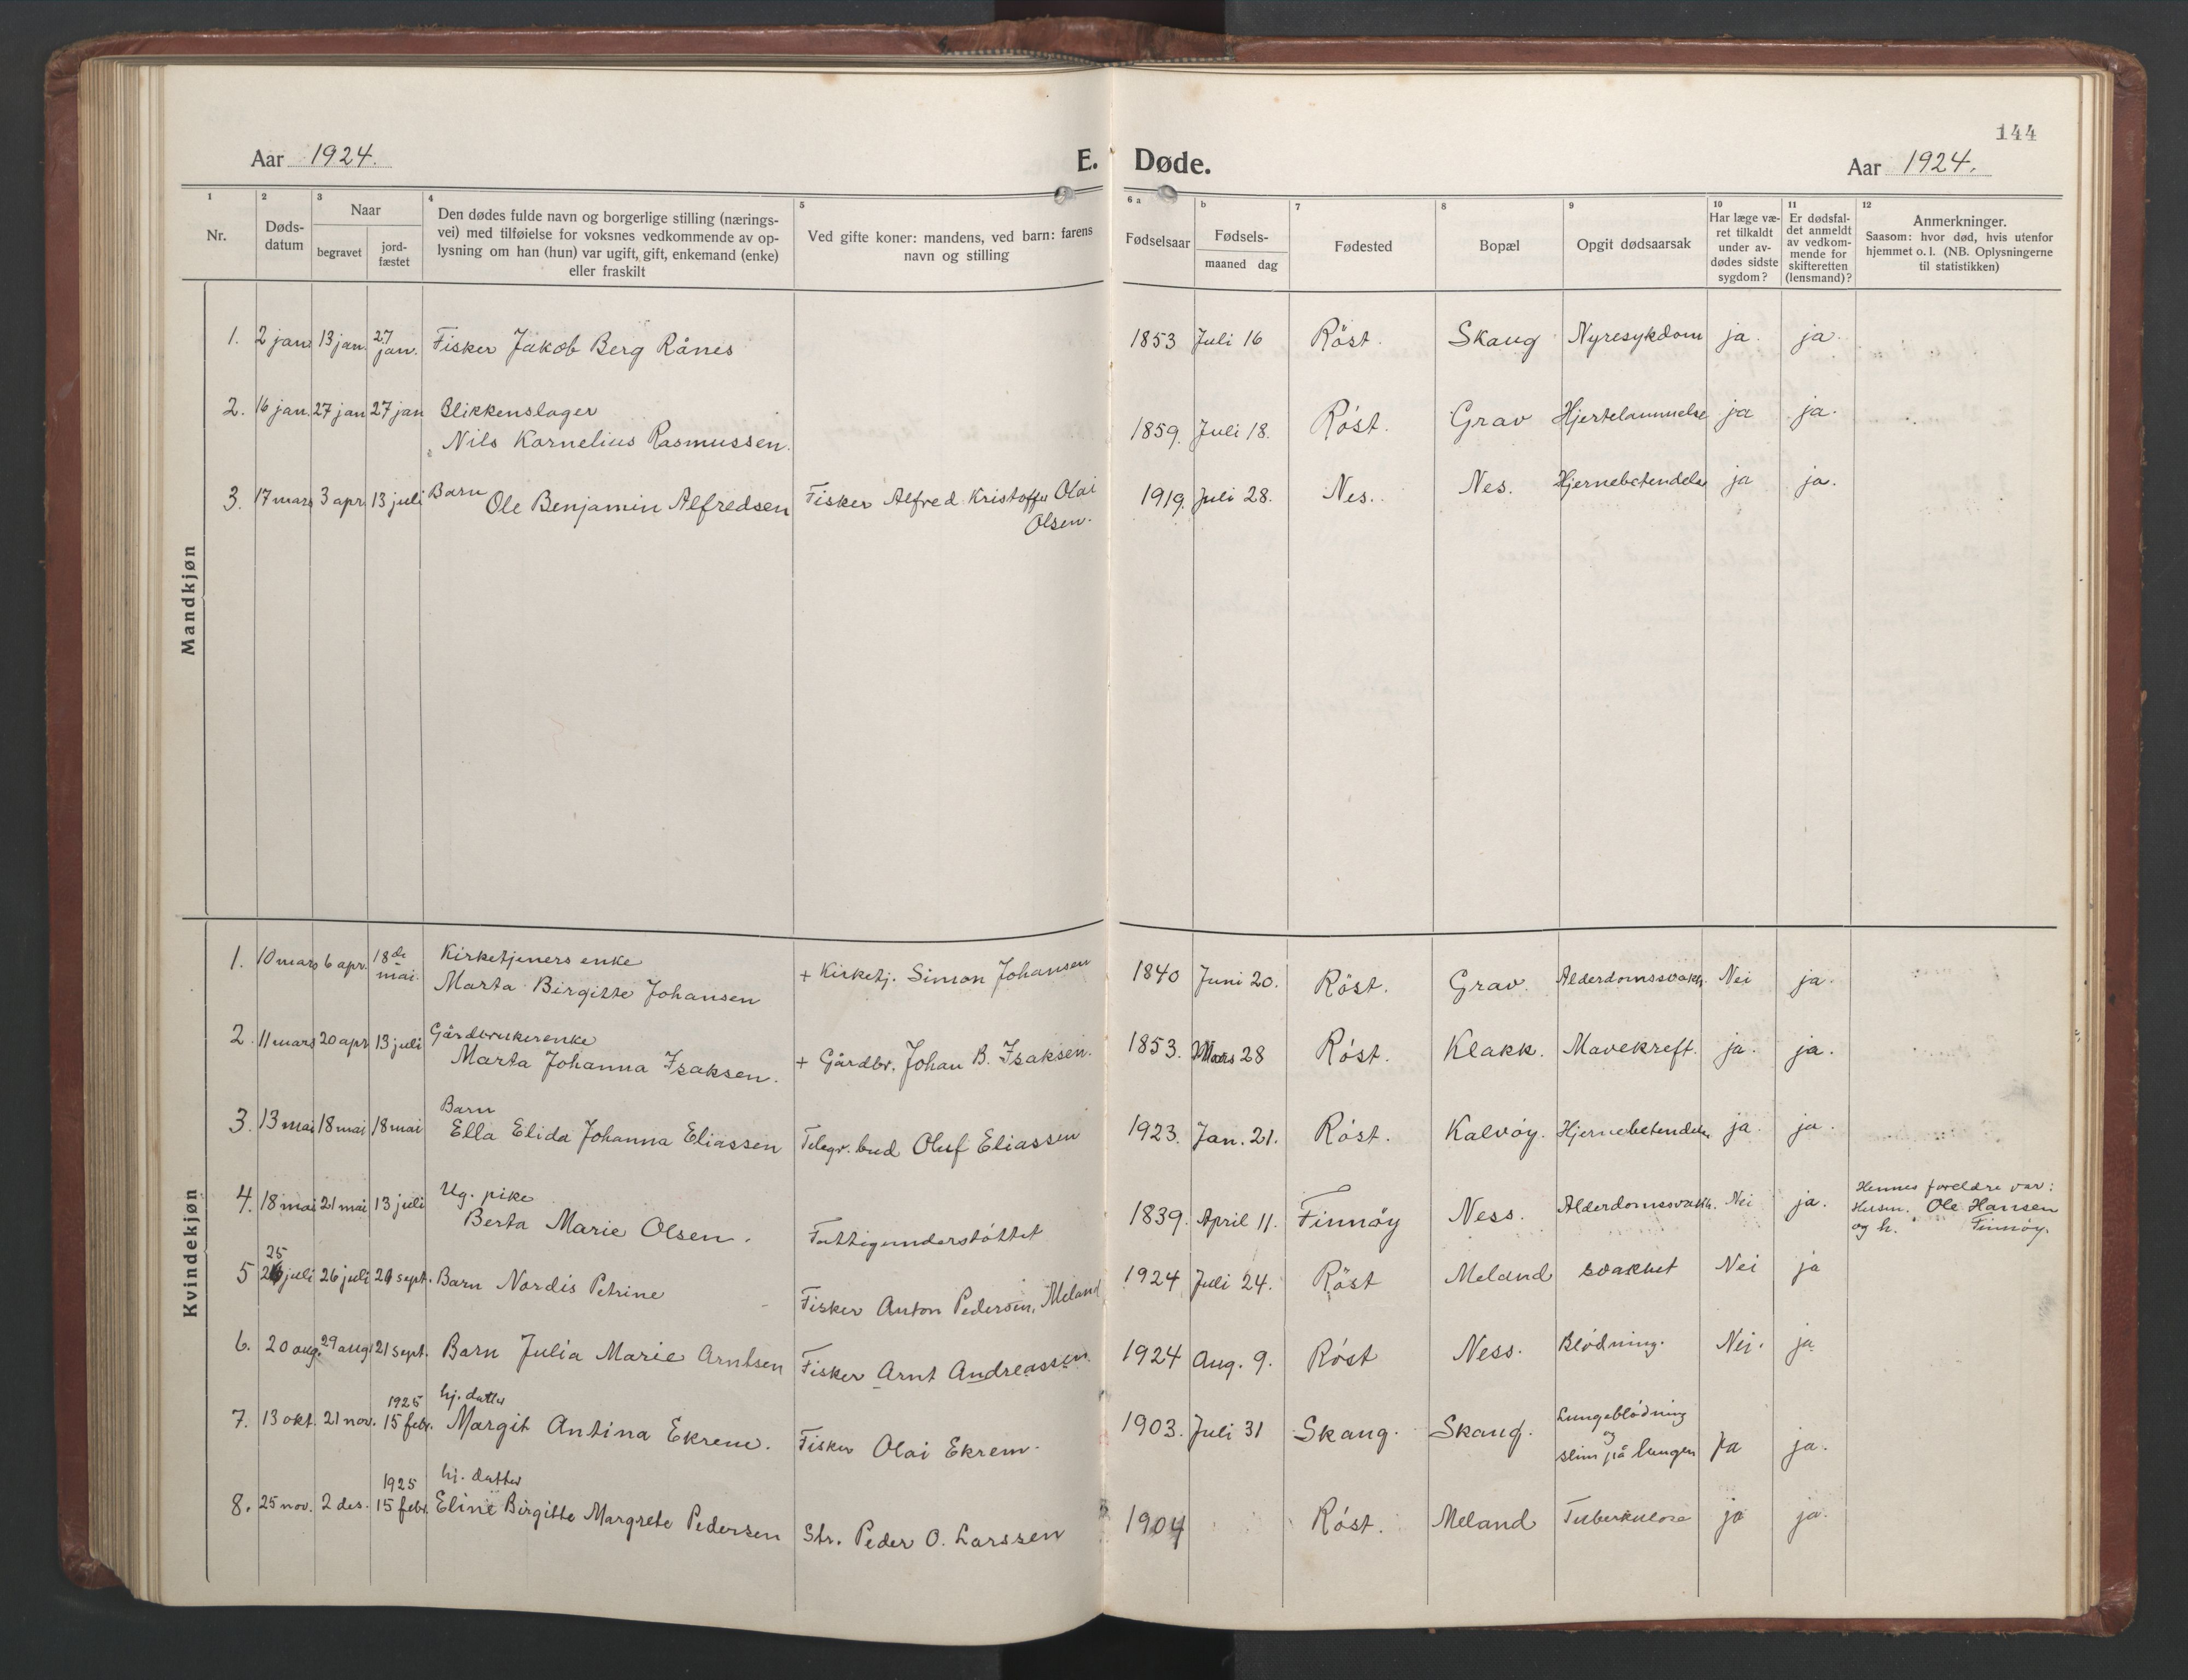 144
Aar 1924. E. Døde. Aar 1924.
1 2 3 4 5 6 a b 7 8 9 10 11 12
Nr.
Døds-
datum
Naar
begravet
jord-
fæstet
Den dødes fulde navn og borgerlige stilling (nærings-
vei) med tilføielse for voksnes vedkommende av op-
lysning om han (hun) var ugift, gift, enkemand (enke)
eller fraskilt
Ved gifte koner: mandens, ved barn: farens
navn og stilling
Fødselsaar
Fødsels-
maaned dag
Fødested
Bopæl
Opgit dødsaarsak
Har læge væ-
ret tilkaldt
under av-
dødes sidste
sygdom?
Er dødsfal-
det anmeldt
av vedkom-
mende for
skifteretten
(lensmand)?
Anmerkninger.
Saasom: hvor død, hvis utenfor
hjemmet o. l. (NB. Oplysningerne
til statistikken)
Mandkjøn
1. 2 jan. 13 jan. 27 jan. Fisker Jakob Berg Rånes 1853 Juli 16 Röst. Skaug Nyresykdom ja. ja.
2. 16 jan. 27 jan 27 jan Blikkenslager
Nils Kornelius Rasmussen. 1859. Juli 18. Röst. Grav Hjertelammelse ja ja.
3. 17 mars 3 apr. 13 juli Barn Ole Benjamin Alfredsen Fisker Alfred Kristoffer Olai
Olsen. 1919. Juli 28. Nes. Nes. Hjernebetendelse ja ja.
Kvindekjøn
1. 10 mars 6 apr. 18de mai. Kirketjeners enke
Marta Birgitte Johansen + Kirketj. Simon Johansen 1840 Juni 20. Röst. Grav. Alderdomssvakh. Nei ja.
2. 11 mars 20 apr 13 juli Gårdbrukerenke
Marta Johanna Isaksen. + Gårdbr. Johan B. Isaksen. 1853. Mars 28 Röst. Klakk. Mavekreft. ja. ja.
3. 13 mai 18 mai 18 mai Barn
Ella Elida Johanna Eliassen Telegr. bud Oluf Eliassen 1923. Jan. 21. Röst. Kalvöy. Hjernebetendels. ja. ja.
4. 18 mai 21 mai 13 juli Ug. pike
Berta Marie Olsen. Fattigunderstöttet 1839. April 11. Finnöy Ness. Alderdomssvakh. Nei ja. Hennes foreldre var:
Husm. Ole Hansen
og h. Finnöy.
5 25 juli 26 juli 21 sept. Barn Nordis Petrine Fisker Anton Pedersen, Meland 1924 Juli 24. Röst Meland svakhet Nei ja
6. 20 aug. 29 aug. 21 sept. Barn Julia Marie Arntsen Fisker Arnt Andreassen. 1924 Aug. 9. Röst Ness. Blödning. Nei. ja
7. 13 okt. 21 nov. 1925 15 febr. hj. datter
Margit Antina Ekrem. Fisker Olai Ekrem. 1903. Juli 31 Skaug. Skaug. Lungeblödning
og
slim på lungen Ja ja.
8. 25 nov. 2 des. 1925 15 febr. hj. datter
Eline Birgitte Margrete Pedersen Str. Peder O. Larssen 1904 Röst. Meland Tuberkulose ja ja.